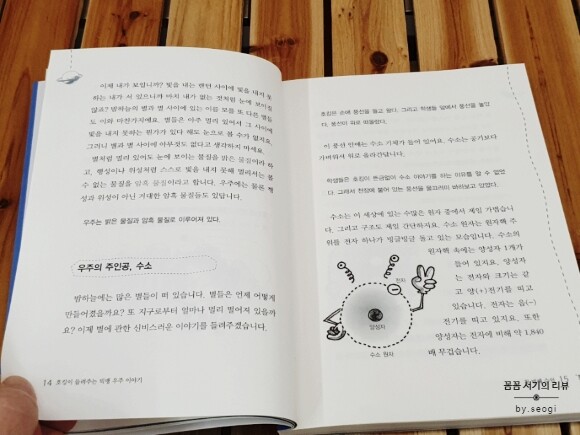 이제 내가 보입니까? 빛을 내는 랜턴 사이에 빛을 내지 못
하는 내가 서 있으니까 마치 내가 없는 것처럼 눈에 보이질
않죠? 밤하늘의 별과 별 사이에 있는 이름 모를 또 다른 별들
도 이와 마찬가지예요. 별들은 아주 멀리 있어서 그 사이에
빛을 내지 못하는 뭔가가 있다 해도 눈으로 볼 수가 없지요.
그러니 별과 별 사이에 아무것도 없다고 생각하지 마세요.
별처럼 멀리 있어도 눈에 보이는 물질을 밝은 물질이라 하
고, 행성이나 위성처럼 스스로 빛을 내지 못해 멀리서는 볼
수 없는 물질을 암흑 물질이라고 합니다. 우주에는 물론 행
성과 위성이 아닌 거대한 암흑 물질들도 있답니다.
우주는 밝은 물질과 암흑 물질로 이루어져 있다.
우주의 주인공, 수소
밤하늘에는 많은 별들이 떠 있습니다. 별들은 언제 어떻게
만들어졌을까요? 또 지구로부터 얼마나 멀리 떨어져 있을까
요? 이제 별에 관한 신비스러운 이야기를 들려주겠습니다.
14 호킹이 들려주는 빅뱅 우주 이야기
호킹은 손에 풍선을 들고 왔다. 그리고 학생들 앞에서 풍선을 놓았
다. 풍선이 위로 떠올랐다.
이 풍선 안에는 수소 기체가 들어 있어요. 수소는 공기보다
가벼워서 위로 올라간답니다.
학생들은 호킹이 뜬금없이 수소 이야기를 하는 이유를 알 수 없었
다. 그래서 천장에 붙어 있는 풍선을 물끄러미 바라보고 있었다.
수소는 이 세상에 있는 수많은 원자 중에서 제일 가볍습니
다. 그리고 구조도 제일 간단하지요. 수소 원자는 원자핵 주
위를 전자 하나가 빙글빙글 돌고 있는 모습입니다. 수소의
원자핵 속에는 양성자 1개가
들어 있지요. 양성자
는 전자와 크기는 같
고 양(+)전기를 띠고
있습니다. 전자는 음(-)
전기를 띠고 있지요. 또한
양성자는 전자에 비해 약 1,840
배 무겁습니다.
전자
양성자
수소 원자
15
꼼꼼 서기의 리뷰
by.seogi